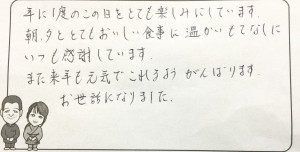 年に1度のこの日をとても楽しみにしています
朝、夕ととてもおいしい食事に温かいもてなしに
いつも感謝しています.
また来年も元気でこれるようがんばります.
お世話になりました.